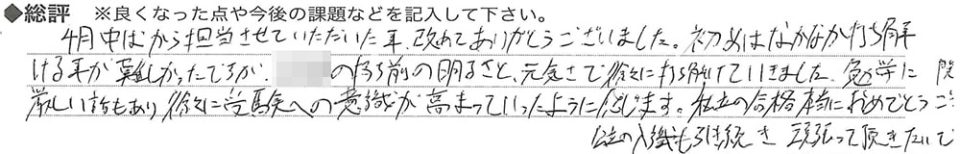 ◆総評 ※良くなった点や今後の課題などを記入して下さい。
4月中ばから担当させていただいた事、改めてありがとうございました。初めはなかなか打ち解
ける事が難しかったですが、の持ち前の明るさと、元気さで徐々に打ち解けていきました。勉学に関
厳しい話もあり徐々に受験への意識が高まっていったように感じます。私立の合格本当におめでとうご
公立の入試も引き続き 頑張って頂きたいで